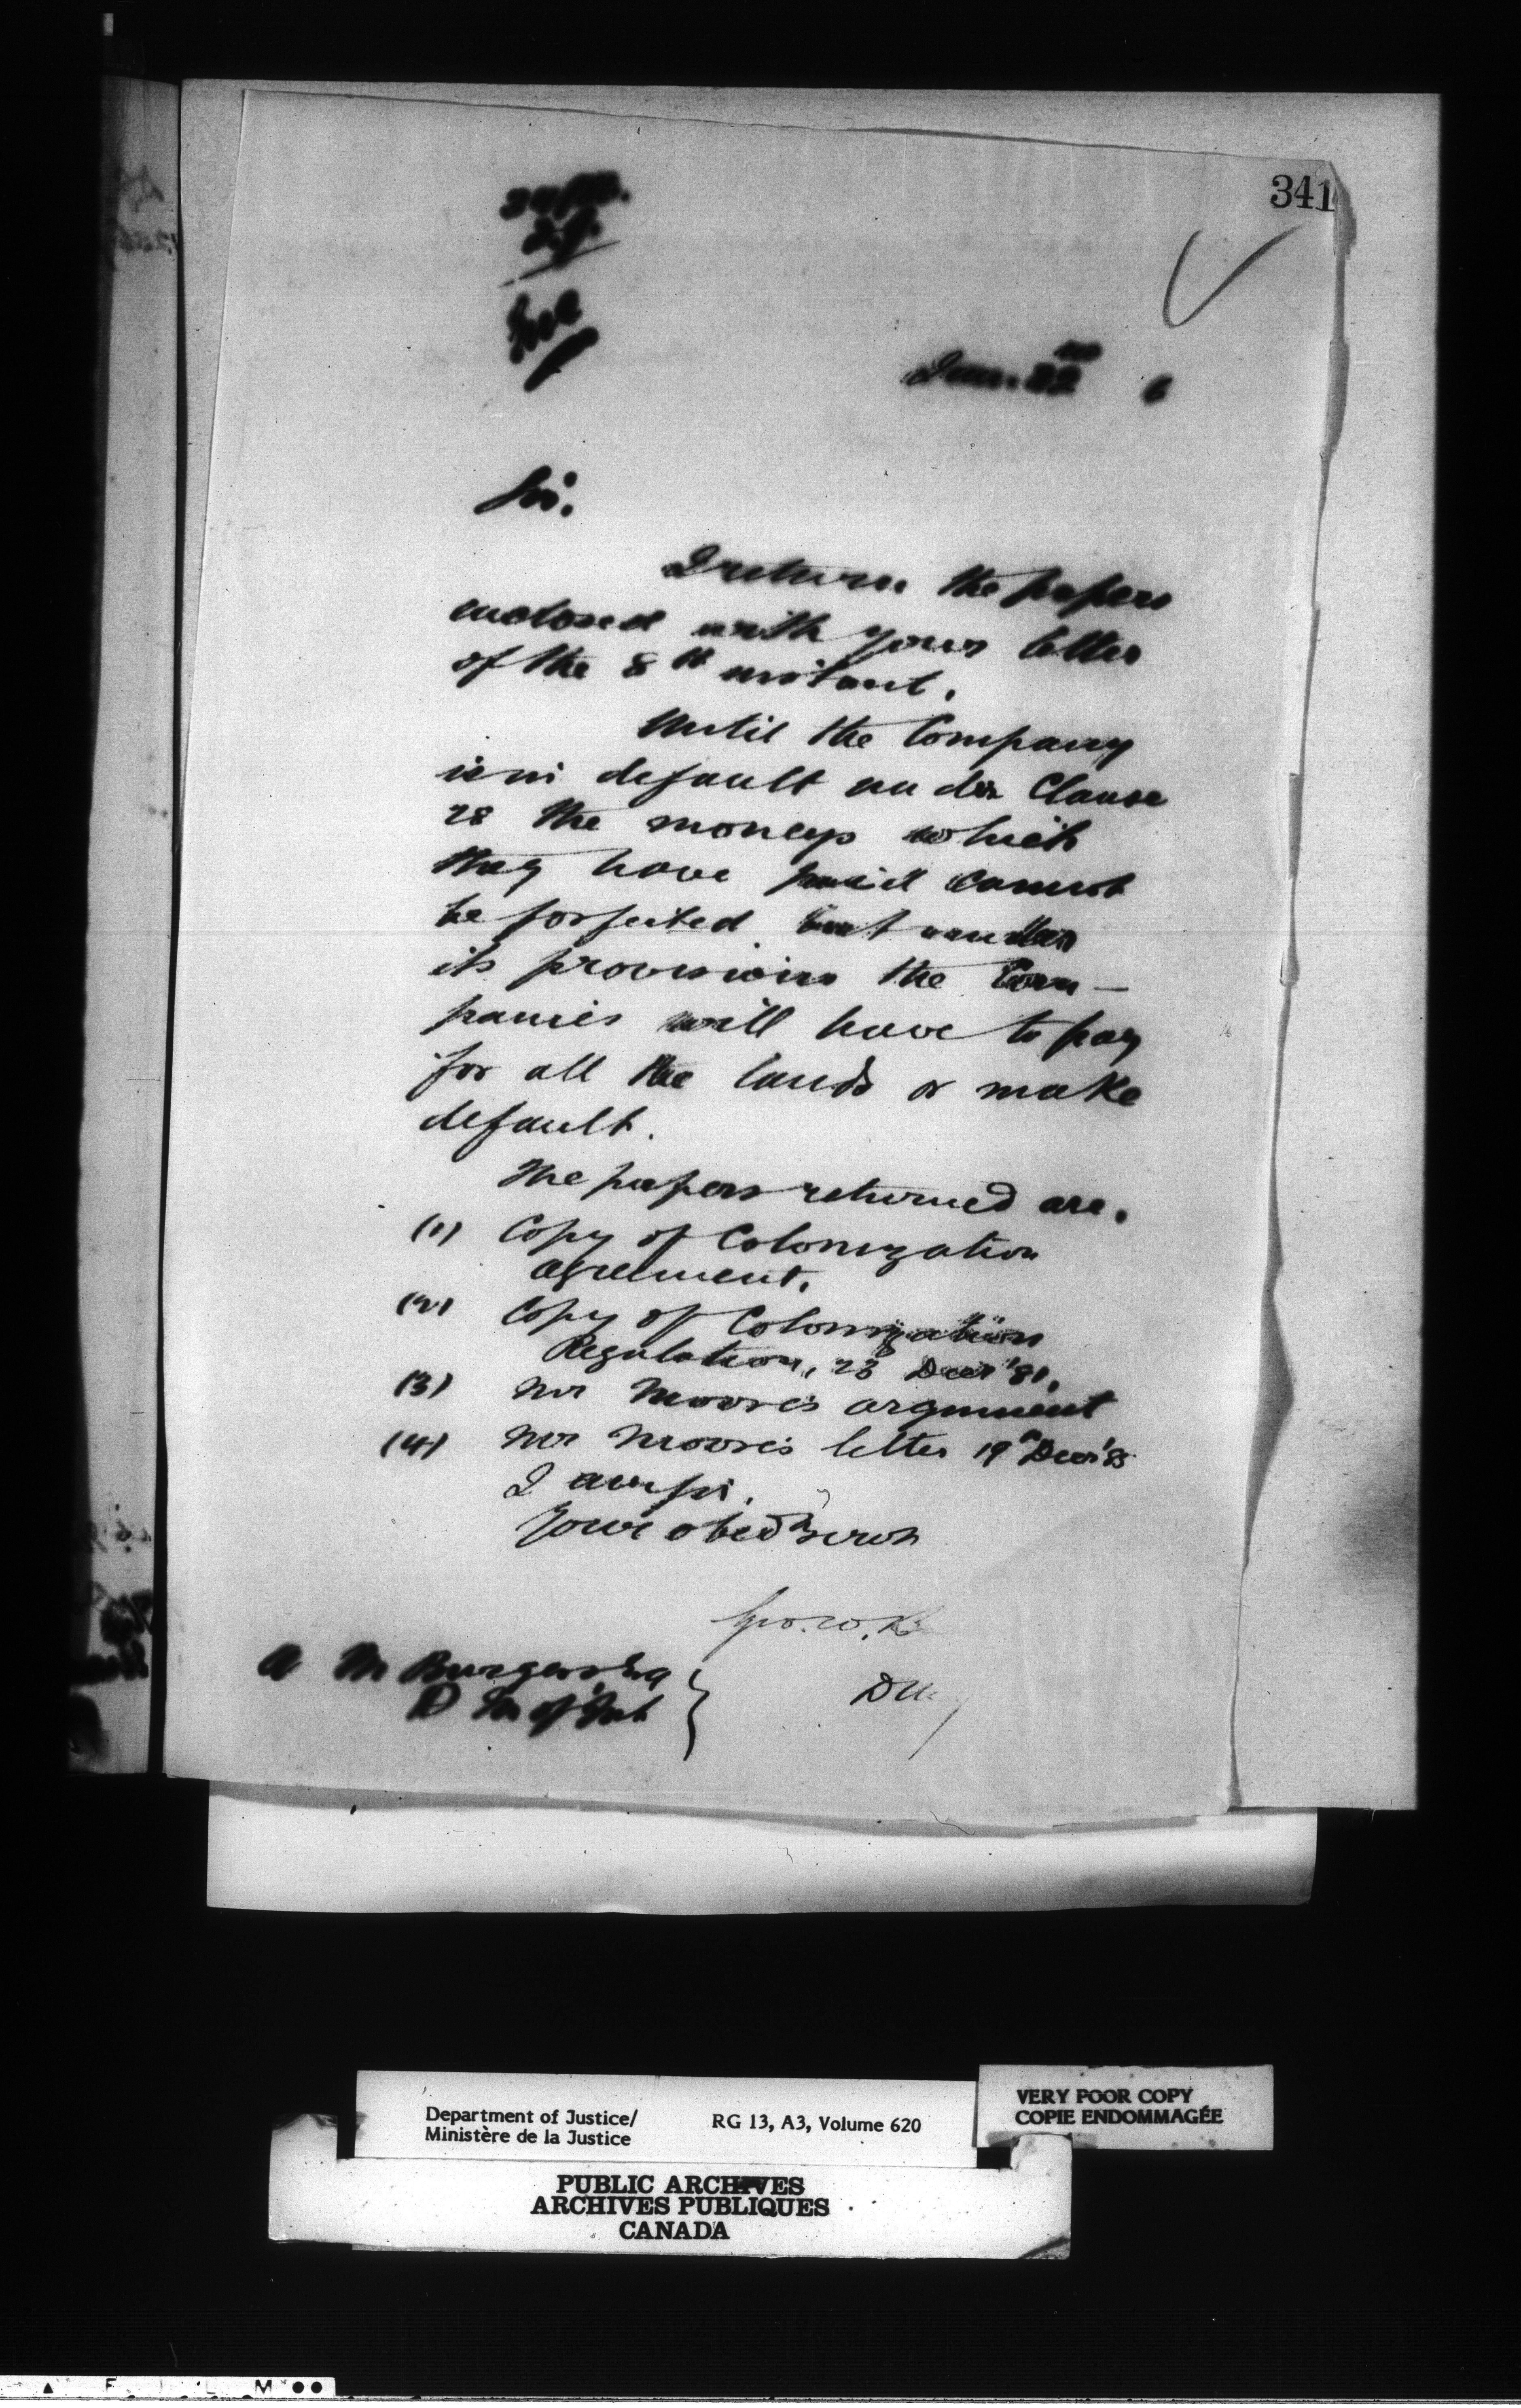 341
Jan. 22nd 6
Sir.
I return the papers
enclosed with your letter
of the 8th instant.
Until the Company
is in default under Clause
28 the moneys which
they have paid cannot
be forfeited but under
its provisions the Com-
panies will have to pay
for all the lands or make
default.
The papers returned are.
(1) Copy of Colonization
agreement.
(2) Copy of Colonization
Regulation, 23 Decr '81.
(3) Mr Moore's argument
(4) Mr Moore's letter 19th Decr '85
I am sir,
Your obedt servt
Geo. W. B
A M Burgess Esq
D M of Int
Department of Justice/
Ministère de la Justice
RG 13, A3, Volume 620
VERY POOR COPY
COPIE ENDOMMAGÉE
PUBLIC ARCHIVES
ARCHIVES PUBLIQUES
CANADA